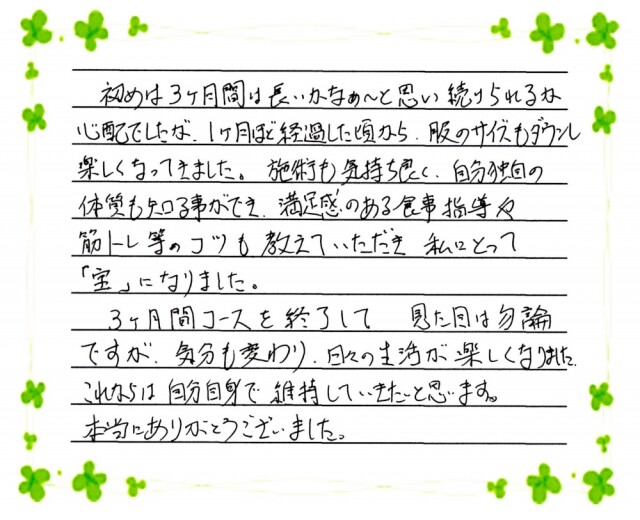 初めは3ヶ月間は長いかなぁ〜と思い続けられるか
心配でしたが、1ヶ月ほど経過した頃から、服のサイズもダウンし
楽しくなってきました。施術も気持ち良く、自分独自の
体質も知る事ができ、満足感のある食事指導や
筋トレ等のコツも教えていただき 私にとって
「宝」になりました。
3ヶ月間コースを終了して 見た目は勿論
ですが、気分も変わり、日々の生活が楽しくなりました。
これならば自分自身で維持していきたいと思います。
本当にありがとうございました。